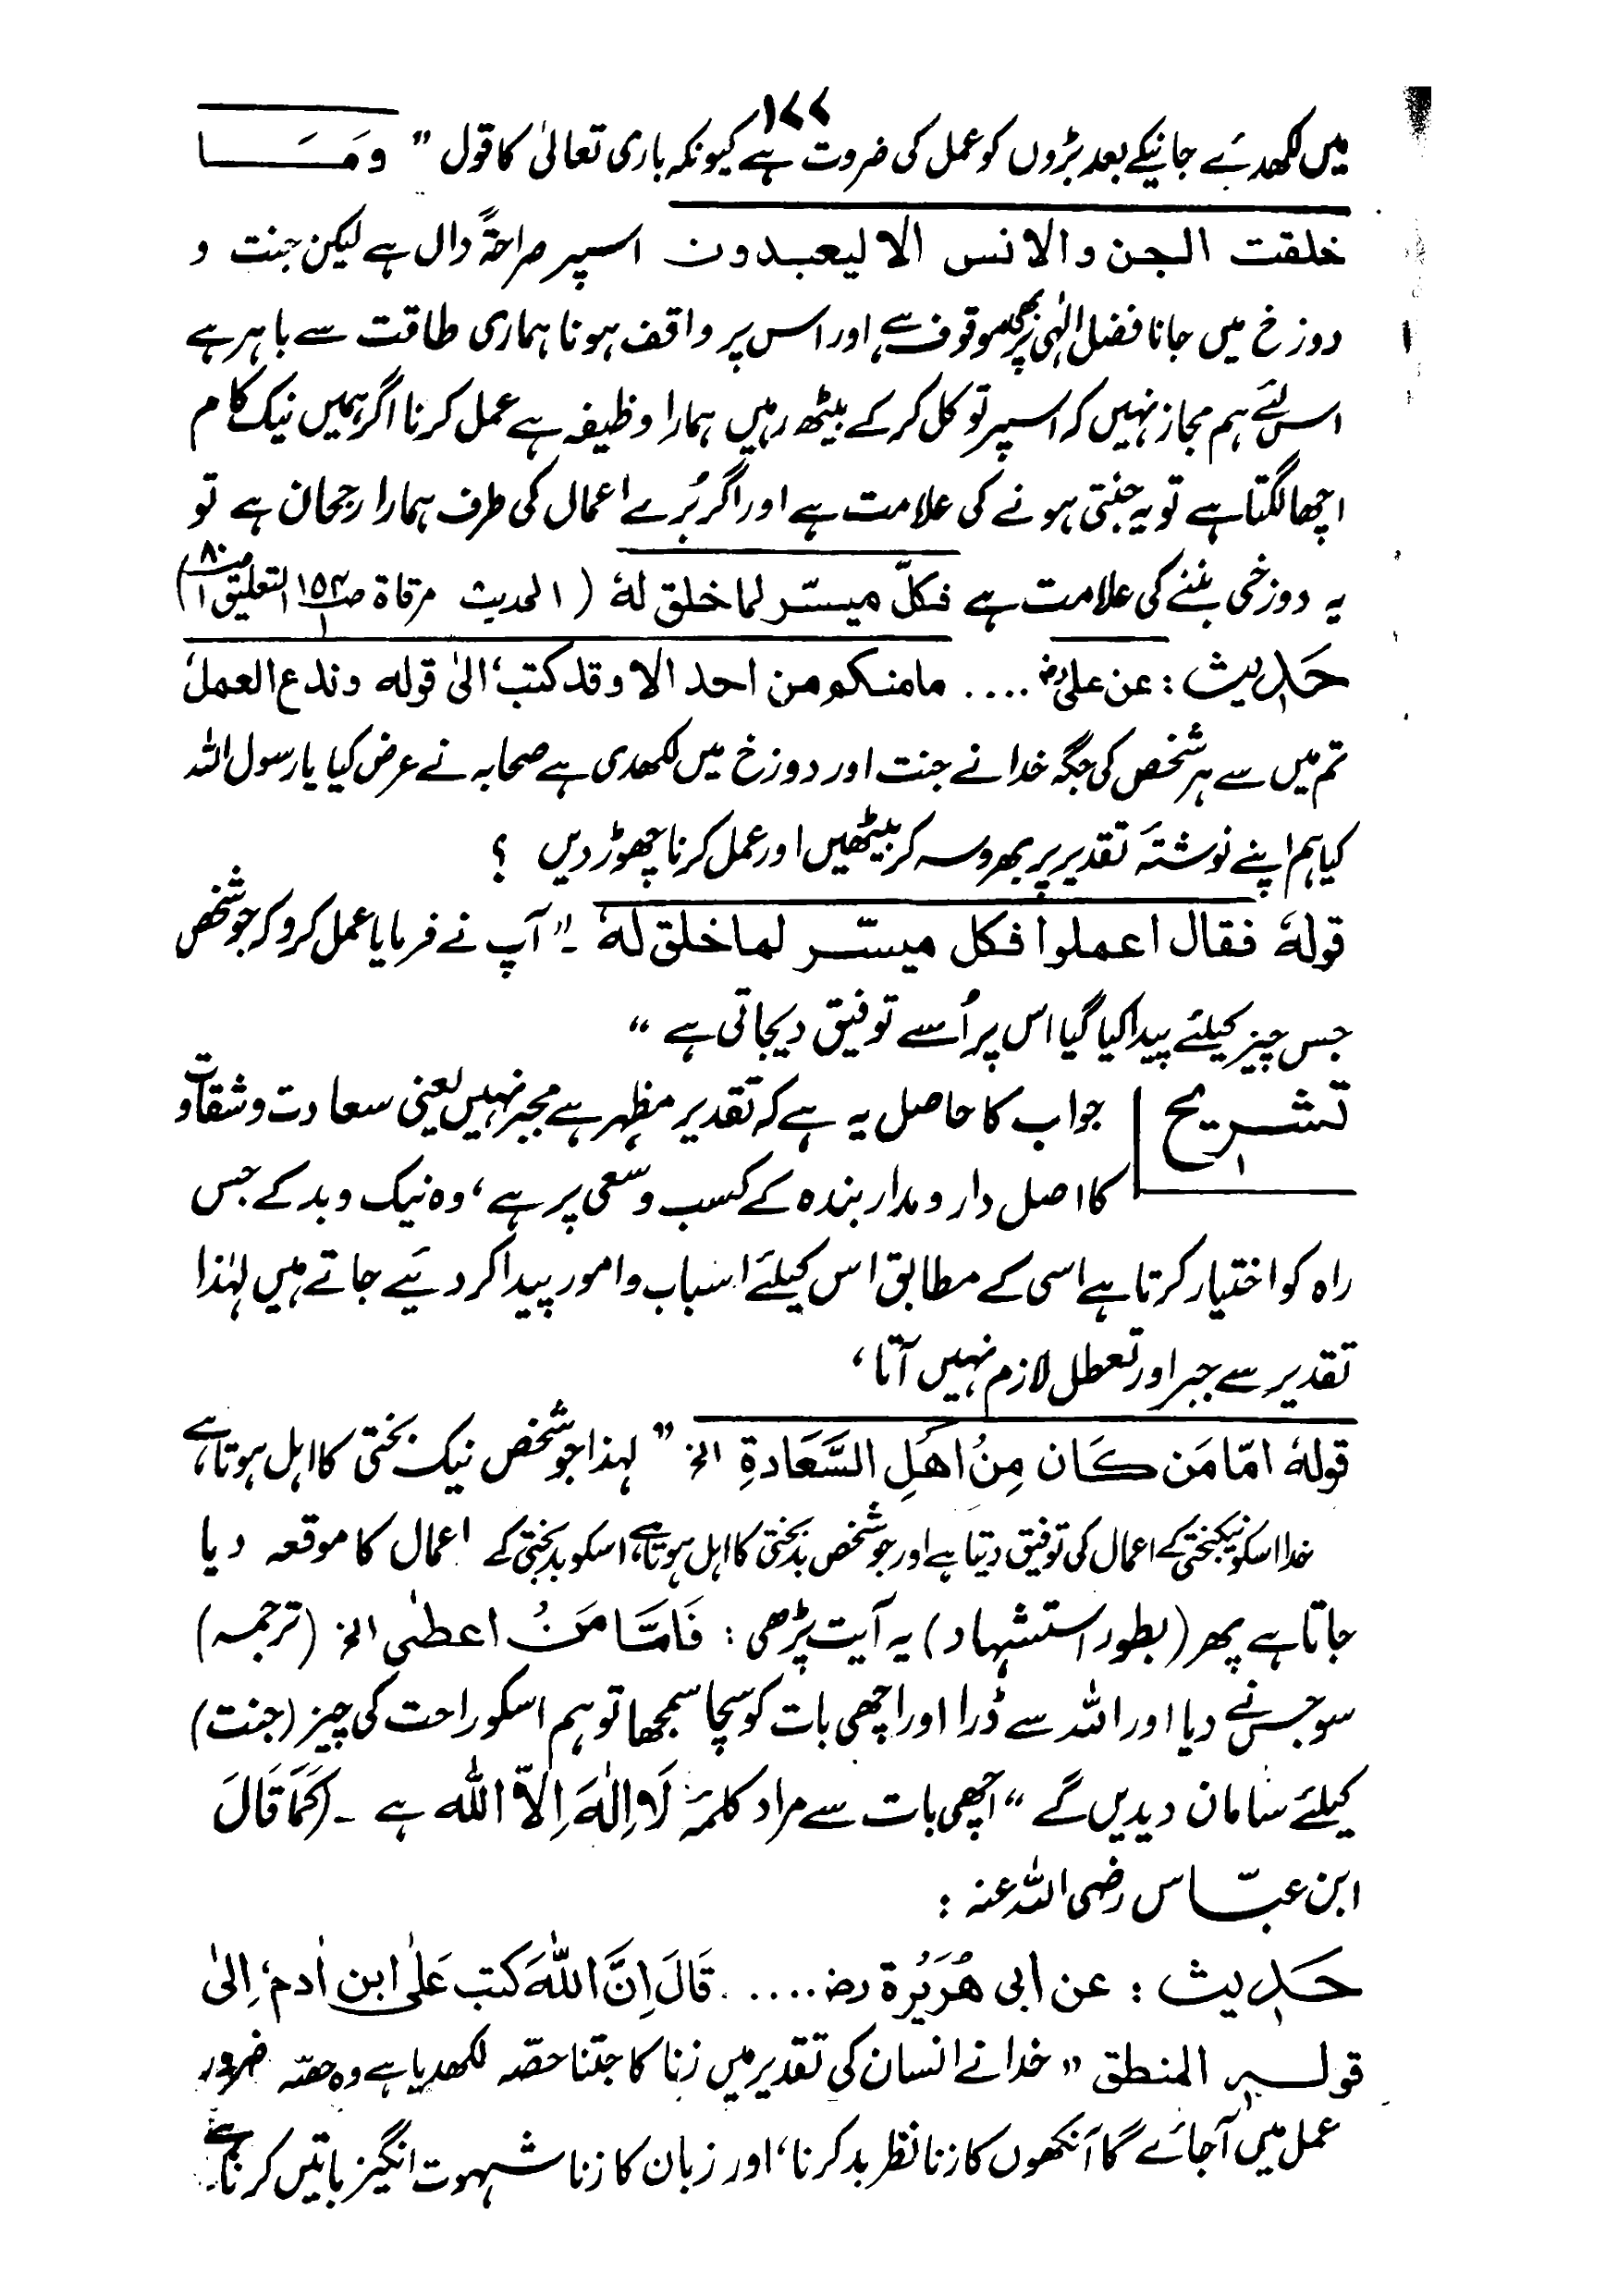 ۱۷۷
میں لکھدئے جانیکے بعد بڑوں کو عمل کی ضروت ہے کیونکہ باری تعالیٰ کا قول " وَمَـــا
خلقت الجن والانس الا لیعبدون اسپر صراحۃً دال ہے لیکن جنت و
دوزخ میں جانا فضل الٰہی پر بھی موقوف ہے اور اس پر واقف ہونا ہماری طاقت سے باہر ہے
اس لئے ہم مجاز نہیں کہ اسپر توکل کرکے بیٹھ رہیں ہمارا وظیفہ ہے عمل کرنا اگر ہمیں نیک کام
اچھا لگتا ہے تو یہ جنتی ہونے کی علامت ہے اور اگر بُرے اعمال کی طرف ہمارا رجحان ہے تو
یہ دوزخی بننے کی علامت ہے فکلّ میسّر لما خلق لہٗ ( الحدیث مرقاۃ ص۱۵۴ ۱ التعلیق ص۸۰ ۱)
حَدِیث : عن علیؓ .... مامنکم من احد الا وقد کتب، الیٰ قولہ وندع العمل
تم میں سے ہر شخص کی جگہ خدا نے جنت اور دوزخ میں لکھدی ہے صحابہ نے عرض کیا یا رسول اللہ
کیا ہم اپنے نوشتۂ تقدیر پر بھروسہ کر بیٹھیں اور عمل کرنا چھوڑ دیں ؟
قولہٗ فقال اعملوا فکل میسّر لما خلق لہٗ ۔" آپ نے فرمایا عمل کرو کہ جو شخص
جس چیز کیلئے پیدا کیا گیا اس پر اُسے توفیق دیجاتی ہے "
تشریح جواب کا حاصل یہ ہے کہ تقدیر مظہر ہے مجبر نہیں یعنی سعادت و شقاوت
کا اصل دار و مدار بندہ کے کسب و سعی پر ہے ، وہ نیک و بد کے جس
راہ کو اختیار کرتا ہے اسی کے مطابق اس کیلئے اسباب و امور پیدا کر دئیے جاتے ہیں لہٰذا
تقدیر سے جبر اور تعطل لازم نہیں آتا ،
قولہٗ امّا مَن کَان مِنْ اَھَلِ السَّعَادۃِ الخ " لہذا جو شخص نیک بختی کا اہل ہوتا ہے
خدا اسکو نیکبختی کے اعمال کی توفیق دیتا ہے اور جو شخص بدبختی کا اہل ہوتا ہے، اسکو بدبختی کے اعمال کا موقعہ دیا
جاتا ہے پھر (بطور استشہاد) یہ آیت پڑھی : فَامَّا مَنْ اعطیٰ الخ (ترجمہ)
سو جس نے دیا اور اللہ سے ڈرا اور اچھی بات کو سچا سمجھا تو ہم اسکو راحت کی چیز (جنت)
کیلئے سامان دیدیں گے " اچھی بات سے مراد کلمۂ لَا اِلٰہَ اِلاّ اللہ ہے ۔ (کَمَا قَالَ
ابن عبّاس رضی اللہ عنہ :
حَدِیث : عن ابی ھُرَیْرۃ رض ..... قَالَ اِنَّ اللہَ کتب عَلٰی ابن اٰدم، اِلیٰ
قولہ المنطق " خدا نے انسان کی تقدیر میں زنا کا جتنا حصّہ لکھدیا ہے وہ حصّہ ضرور
عمل میں آجائے گا آنکھوں کا زنا نظر بد کرنا، اور زبان کا زنا شہوت انگیز باتیں کرنا ہے